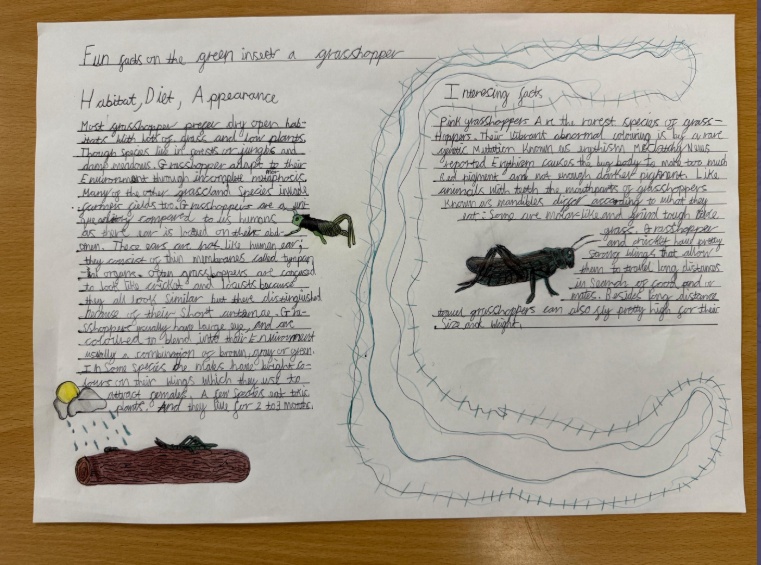 Fun facts on the green insect a grasshopper
Habitat, Diet, Appearance
Most grasshopper prefer dry open hab-
itats with lots of grass and low plants.
Though species lie in forests or jungles and
damp meadows. Grasshopper adapt to their
Environment through incomplete metaphosis.
Many of the other grassland species invade
farmers fields too. Grasshopper are a
compared to us humans
as there ear is located on their abd-
omen. These ears are not like human ear;
they consist of thin membranes called tympan-
al organs. Often grasshoppers are confused
to look like cricket and locusts because
they all look similar but there distinguished
because of their short antennae. Gra-
sshoppers usually have large eye, and are
coloured to blend into their Environment
usually a combination of brown, gray or green.
In some species the males have bright co-
lours on their wings which they use to
attract females. A few species eat toxic
plants. And they live for 2 to 3 months.
Interesing facts
Pink grasshoppers Are the rarest species of grass-
hoppers. Their vibrant abnormal colouring is by a rare
genetic Mutation known as erythism McClatchy News
reported Erythism causes the bug body to make too much
Red pigment and not enough darker pigment. Like
animals with teeth the mouthparts of grasshoppers
known as mandibles differ according to what they
eat: Some are molar-like and grind tough like
grass. Grasshopper
and cricket have pretty
song wings that allow
them to travel long distances
in search of food and or
mates. Besides long distance
travel grasshoppers can also fly pretty high for their
Size and Weight.